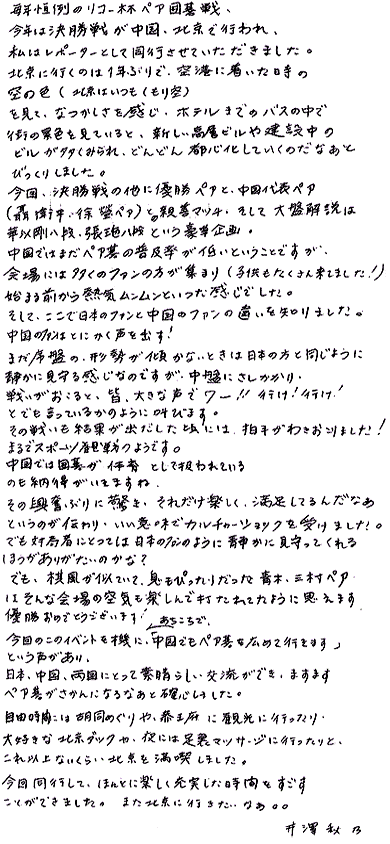 毎年恒例のリコー杯ペア囲碁戦、
今年は決勝戦が中国、北京で行われ、
私はレポーターとして同行させていただきました。
北京に行くのは1年ぶりで、空港に着いた時の
空の色(北京はいつもくもり空)
を見て、なつかしさを感じ、ホテルまでのバスの中で
街の景色を見ていると、新しい高層ビルや建設中の
ビルが多くみられ、どんどん都心化していくのだなあと
びっくりしました。
今回、決勝戦の他に優勝ペアと、中国代表ペア
(聶偉平・徐瑩ペア)との親善マッチ、そして大盤解説は
華以剛八段、張璇八段という豪華企画。
中国ではまだペア碁の普及率が低いということですが、
会場には多くのファンの方が集まり(子供もたくさん来てました!)
始まる前から熱気ムンムンといった感じでした。
そして、ここで日本のファンと中国のファンの違いを知りました。
中国のファンはとにかく声を出す!
まだ序盤の、形勢が傾かないときは日本の方と同じように
静かに見守る感じなのですが、中盤にさしかかり、
戦いがおこると、皆、大きな声でワー!!行け!行け!
とでも言っているかのように叫びます。
その戦いも結果が出だした頃には、拍手がわきおこりました!
まるでスポーツ観戦のようです。
中国では囲碁が体育として扱われている
のも納得がいきますね。
その興奮ぶりに驚き、それだけ楽しく、満足してるんだなあ
というのが伝わり、いい意味でカルチャーショックを受けました。
でも対局者にとっては日本のファンのように静かに見守ってくれる
ほうがありがたいのかな?
でも、棋風が似ていて、息もぴったりだった青木、三村ペア
はそんな会場の空気も楽しんで打たれてたように思えます
優勝おめでとうございます!
あちこちで、
今回のこのイベントを機に、「中国でもペア碁を広めて行きます」
という声があり、
日本、中国、両国にとって素晴らしい交流ができ、ますます
ペア碁がさかんになるなあと確心しました。
自由時間には胡同めぐりや、恭王府に観光に行ったり、
大好きな北京ダックや、夜には足裏マッサージに行ったりと、
これ以上ないくらい北京を満喫しました。
今回同行して、ほんとに楽しく充実した時間をすごす
ことができました。また北京に行きたいなあ。。
井澤秋乃